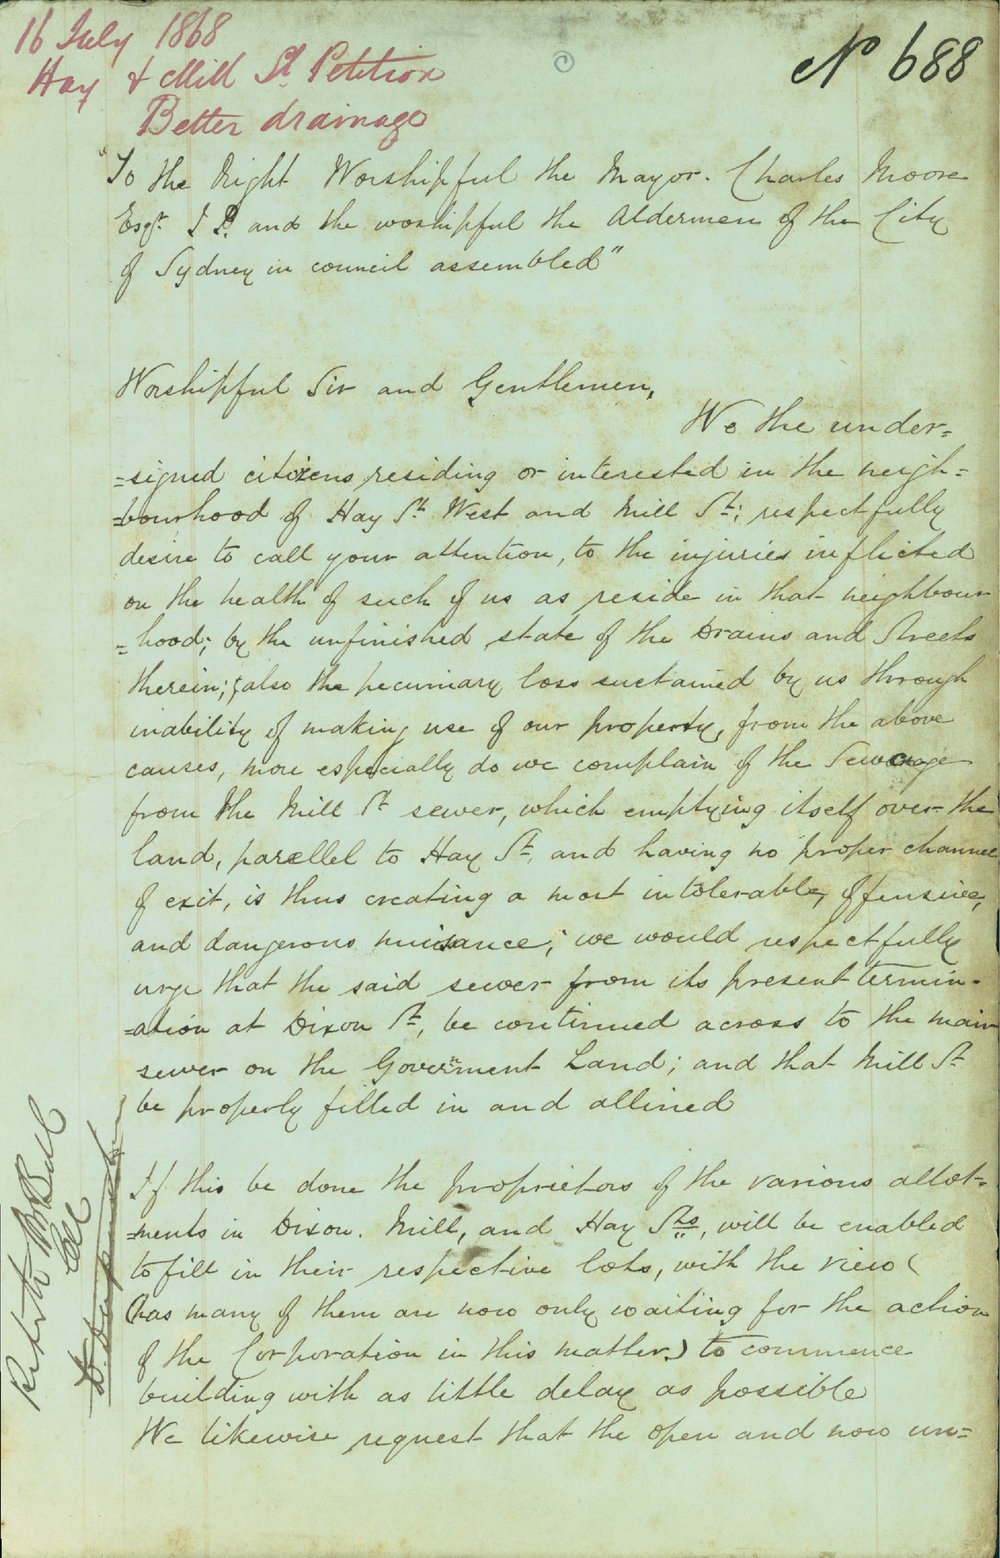 16 July 1868
Hay & Mill St Petition
Better drainage
No 688
"To the Right Worshipful the Mayor. Charles Moore
Esqr. J P. and the worshipful the Aldermen of the City
of Sydney in council assembled"
Worshipful Sir and Gentlemen,
We the under=
=signed citizens residing or interested in the neigh=
=bourhood of Hay St West and Mill St; respectfully
desire to call your attention, to the injuries inflicted
on the health of such of us as reside in that neighbour
=hood; by the unfinished state of the Drains and Streets
therein; also the pecuniary loss sustained by us through
inability of making use of our property, from the above
causes, more especially do we complain of the Sewerage
from the Mill St sewer, which emptying itself over the
land, parellel to Hay St, and having no proper channel
of exit, is thus creating a most intolerable, offensive,
and dangerous nuisance; we would respectfully
urge that the said sewer from its present termin-
=ation at Dixon St, be continued across to the main
sewer on the Government Land; and that Mill St
be properly filled in and allined
If this be done the proprietors of the various allot=
=ments in Dixon. Mill, and Hay Sts, will be enabled
to fill in their respective lots, with the view (
(as many of them are now only waiting for the action
of the Corporation in this matter) to commence
building with as little delay as possible
We likewise request that the open and now un=